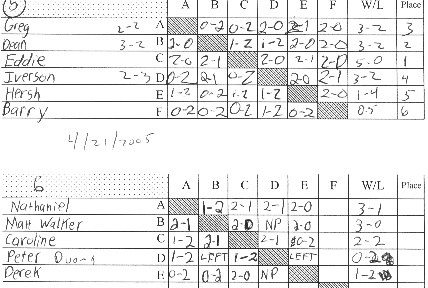 5 A B C D E F W/L Place
Greg 2-2 A 0-2 0-2 2-0 2-1 2-0 3-2 3
Dean 3-2 B 2-0 1-2 1-2 2-0 2-0 3-2 2
Eddie C 2-0 2-1 2-0 2-1 2-0 5-0 1
Iverson 2-3 D 0-2 2-1 0-2 2-0 2-1 3-2 4
Hersh E 1-2 0-2 1-2 1-2 2-0 1-4 5
Barry F 0-2 0-2 0-2 1-2 0-2 0-5 6
4/21/2005
6 A B C D E F W/L Place
Nathaniel A 1-2 2-1 2-1 2-0 3-1
Matt Walker B 2-1 2-0 NP 2-0 3-0
Caroline C 1-2 2-1 2-1 0-2 2-2
Peter D 1-2 LEFT 1-2 LEFT 0-2
Derek E 0-2 0-2 2-0 NP 1-2